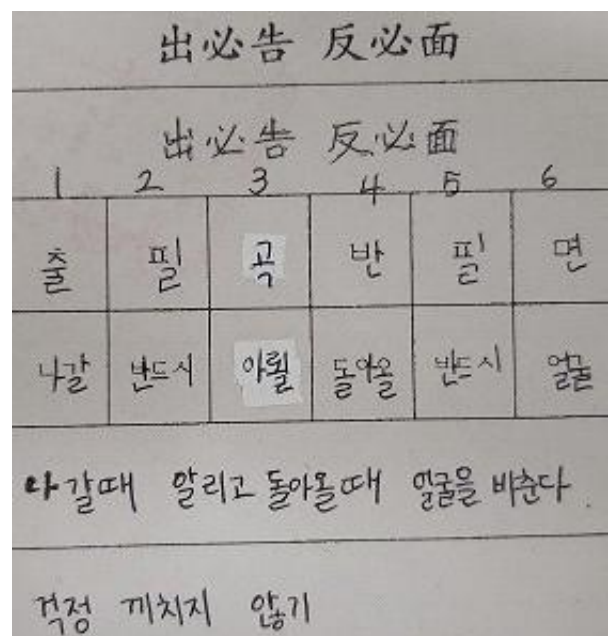 出必告 反必面
出必告 反必面
1 2 3 4 5 6
출 필 곡 반 필 면
나갈 반드시 아뢸 돌아올 반드시 얼굴
나갈때 알리고 돌아올때 얼굴을 비춘다.
걱정 끼치지 않기